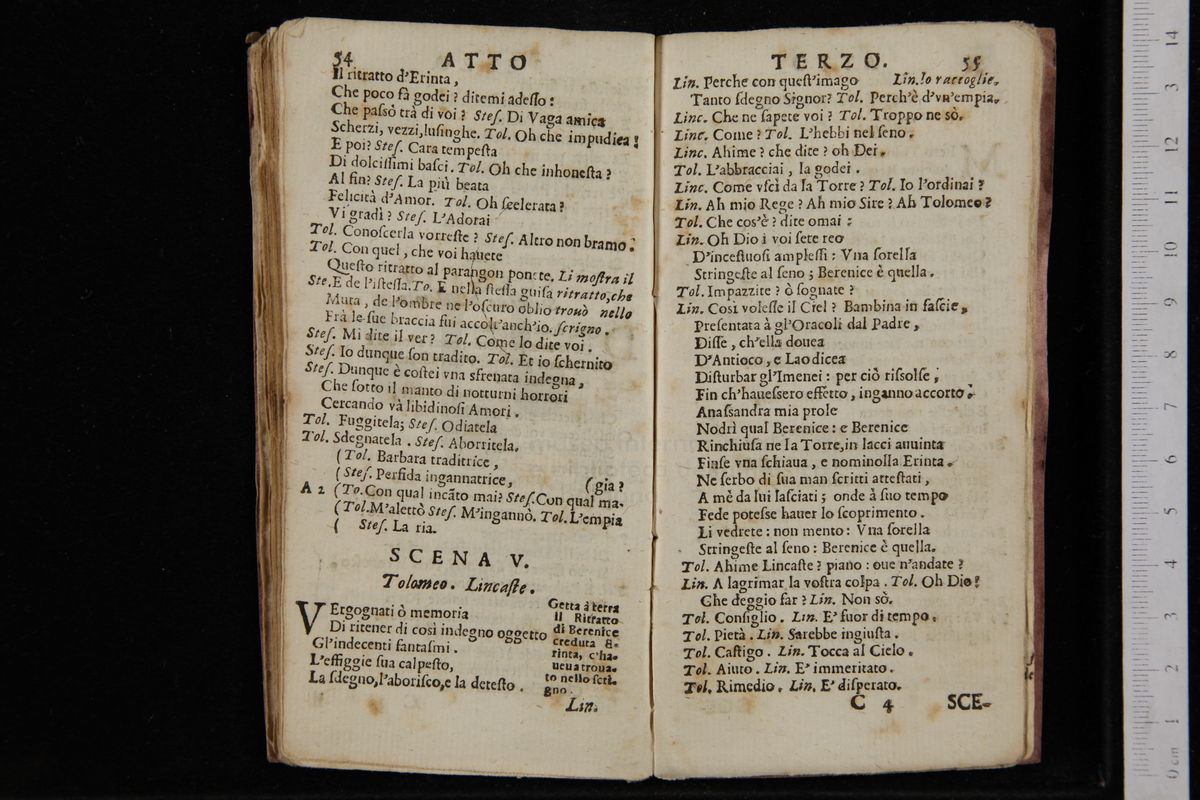 54 ATTO
Il ritratto d'Erinta,
Che poco fà godei? ditemi adeſſo:
Che paſsò trà di voi? Steſ. Di Vaga amica
Scherzi, vezzi, luſinghe. Tol. Oh che impudica!
E poi? Steſ. Cara tempeſta
Di dolciſſimi baſci. Tol. Oh che inhoneſta?
Al fin? Steſ. La più beata
Felicità d'Amor. Tol. Oh ſcelerata?
Vi gradì? Steſ. L'Adorai
Tol. Conoſcerla vorreſte? Steſ. Altro non bramo:
Tol. Con quel, che voi hauete
Queſto ritratto al parangon ponete. Li moſtra il
Ste. E de l'iſteſſa. To. E nella ſteſſa guiſa ritratto, che
Muta, de l'ombre ne l'oſcuro oblio trouò nello
Frà le ſue braccia fui accolt'anch'io. ſcrigno.
Steſ. Mi dite il ver? Tol. Come lo dite voi.
Steſ. Io dunque ſon tradito. Tol. Et io ſchernito
Steſ. Dunque è coſtei vna sfrenata indegna,
Che ſotto il manto di notturni horrori
Cercando và libidinoſi Amori.
Tol. Fuggitela; Steſ. Odiatela
Tol. Sdegnatela. Steſ. Aborritela.
(Tol. Barbara traditrice,
(Steſ. Perfida ingannatrice, (gia?
A 2 (To. Con qual incãto mai? Steſ. Con qual ma-
(Tol. M'alettò Steſ. M'ingannò. Tol. L'empia
( Steſ. La ria.
SCENA V.
Tolomeo. Lincaſte.
VErgognati ò memoria
Di ritener di così indegno oggetto
Gl'indecenti fantaſmi.
L'effiggie ſua calpeſto,
La ſdegno, l'aboriſco, e la deteſto.
Getta à terra
il Ritratto
di Berenice
creduta E-
rinta, c'ha-
ueua troua-
to nello ſcri-
gno.
Lin.
TERZO. 55
Lin. Perche con queſt'imago Lin. lo raccoglie.
Tanto ſdegno Signor? Tol. Perch'è d'vn'empia.
Linc. Che ne ſapete voi? Tol. Troppo ne sò.
Linc. Come? Tol. L'hebbi nel ſeno.
Linc. Ahime? che dite? oh Dei.
Tol. L'abbracciai, la godei.
Linc. Come vſcì da la Torre? Tol. Io l'ordinai?
Lin. Ah mio Rege? Ah mio Sire? Ah Tolomeo?
Tol. Che cos'è? dite omai:
Lin. Oh Dio i voi ſete reo
D'inceſtuoſi ampleſſi: Vna ſorella
Stringeſte al ſeno; Berenice è quella.
Tol. Impazzite? ò ſognate?
Lin. Così voleſſe il Ciel? Bambina in faſcie,
Preſentata à gl'Oracoli dal Padre,
Diſſe, ch'ella douea
D'Antioco, e Laodicea
Diſturbar gl'Imenei: per ciò riſsolſe,
Fin ch'haueſsero effetto, inganno accorto,
Anaſsandra mia prole
Nodrì qual Berenice: e Berenice
Rinchiuſa ne la Torre, in lacci auuinta
Finſe vna ſchiaua, e nominolla Erinta.
Ne ſerbo di ſua man ſcritti atteſtati,
A mè da lui laſciati; onde à ſuo tempo
Fede poteſse hauer lo ſcoprimento.
Li vedrete: non mento: Vna ſorella
Stringeſte al ſeno: Berenice è quella.
Tol. Ahime Lincaſte? piano: oue n'andate?
Lin. A lagrimar la voſtra colpa. Tol. Oh Dio!
Che deggio far? Lin. Non sò.
Tol. Conſiglio. Lin. E' fuor di tempo.
Tol. Pietà. Lin. Sarebbe ingiuſta.
Tol. Caſtigo. Lin. Tocca al Cielo.
Tol. Aiuto. Lin. E' immeritato.
Tol. Rimedio. Lin. E' diſperato.
C 4 SCE-
0 cm 1 2 3 4 5 6 7 8 9 10 11 12 3 14